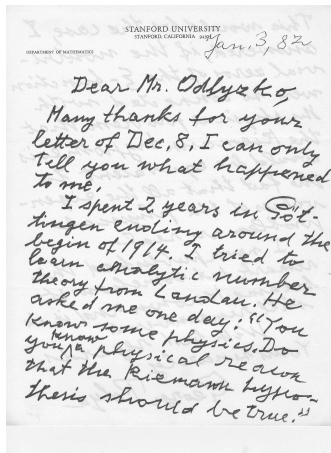 STANFORD UNIVERSITY
STANFORD, CALIFORNIA 94305
DEPARTMENT OF MATHEMATICS
Jan. 3, 82
Dear Mr. Odlyzko,
Many thanks for your
letter of Dec, 8. I can only
tell you what happened
to me.
I spent 2 years in Göt-
tingen ending around the
begin of 1914. I tried to
learn analytic number
theory from Landau. He
asked me one day: "You
know some physics. Do
you know a physical reason
that the Riemann hypo-
thesis should be true."